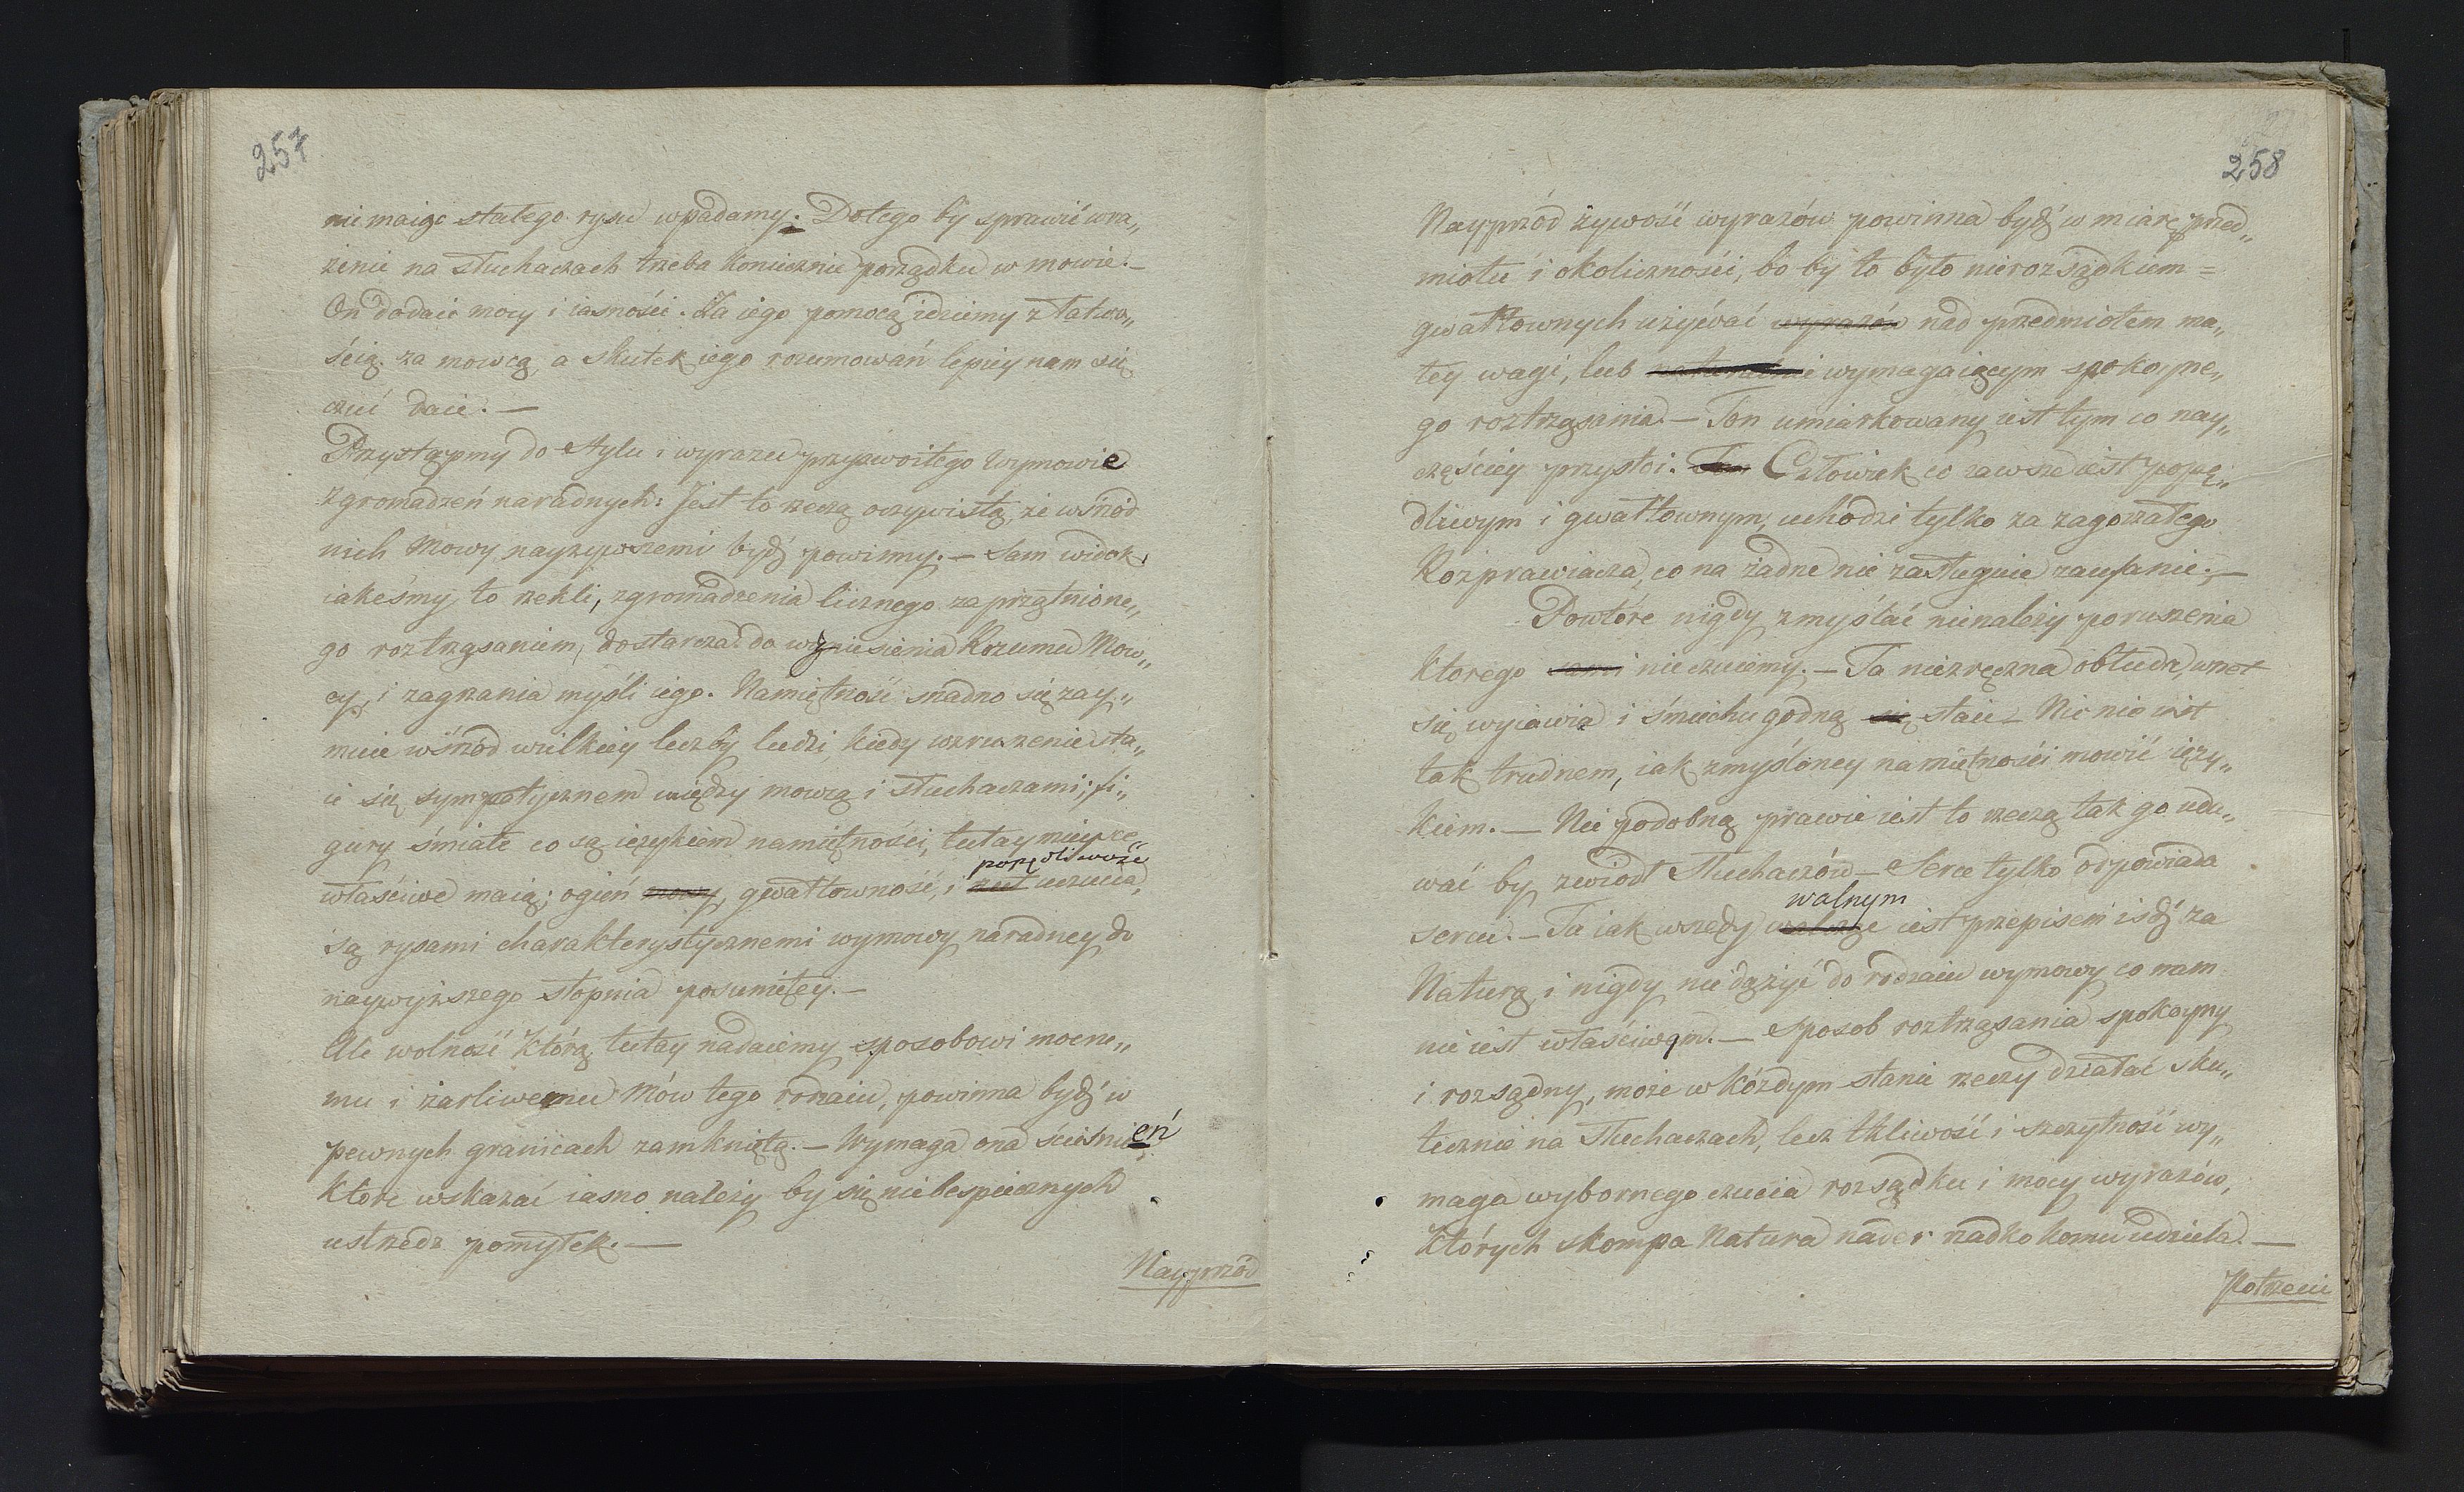 257
nie maiąc stałego rysu wpadamy. Dotego by sprawić wra„
żenie na słuchaczach trzeba koniecznie porządku w mowie.—
On dodaie mocy i iasności. Za iego pomocą idziemy z łatwo„
ścią za mowcą, a skutek iego rozumowań lepiey nam się
czuć daie.—
Przystąpmy do stylu i wyrazu przyzwoitego wymowie
zgromadzeń naradnych: Jest to rzeczą oczywistą, że wśród
nich Mowy nayżywszemi bydź powinny.— Sam widok,
iakeśmy to rzekli, zgromadzenia licznego zaprzątnione„
go roztrząsaniem, dostarcza do wzniesienia Rozumu Mow„
cy, i zagrzania myśli iego. Namiętność snadno się zay„
muie wśród wielkiey liczby ludzi, kiedy wzruszenie sta„
ie się sympatycznem między mowcą i słuchaczami; fi„
gury śmiałe co są ięzykiem namiętności, tutay mieysce
popędliwość
właściwe maią; ogień mowy, gwałtowność, i uczucia,
są rysami charakterystycznemi wymowy naradney do
naywyższego stopnia posuniętey.—
Ale wolność którą tutay nadaiemy sposobowi mocne„
mu i żarliwemu Mów tego rodzaiu, powinna bydź w
pewnych granicach zamkniętą.— Wymaga ona ścieśnień
które wskazać iasno należy by się niebespiecznych
ustrzedz pomyłek.—
Nayprzód
258
Nayprzód żywość wyrazów powinna bydź w miarę przed„
miotu i okoliczności, bo by to było nierozsądkiem =
gwałtownych używać wyrazów nad przedmiotem ma„
łey wagi, lub wymagaiącym spokoyne„
go roztrząsania.— Ton umiarkowany iest tym co nay„
częściey przystoi. Ten Człowiek co zawsze iest popę„
dliwym i gwałtownym, uchodzi tylko za zagorzałego
Rozprawiacza, co na żadne nie zasługuie zaufanie.—
Powtóre nigdy zmyślać nienależy poruszenia
ktorego sami nie czuiemy.— Ta niezręczna obłuda, wnet
się wyiawia i śmiechu godną się staie— Nic nie iest
tak trudnem, iak zmyśloney namiętności mowić ięzy„
kiem.— Nie podobną prawie iest to rzeczą tak go uda„
wać by zwiodł Słuchaczów— Serce tylko odpowiada
walnym
sercu.— Tu iak wszędy iest przepisem iśdź za
Naturą i nigdy nie dążyć do rodzaiu wymowy co nam
nie iest właściwym.— Sposob roztrząsania spokoyny
i rozsądny, może w kóżdym stanie rzeczy działać sku„
tecznie na Słuchaczach, lecz tkliwość i szczytność wy„
maga wybornego czucia rozsądku i mocy wyrazów,
których skompa Natura nader rzadko komu udziela.—
Potrzecie